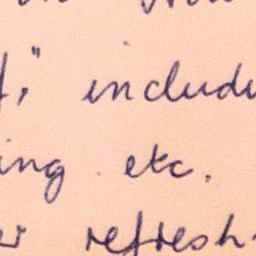 ," includi
ing etc.
er refresh